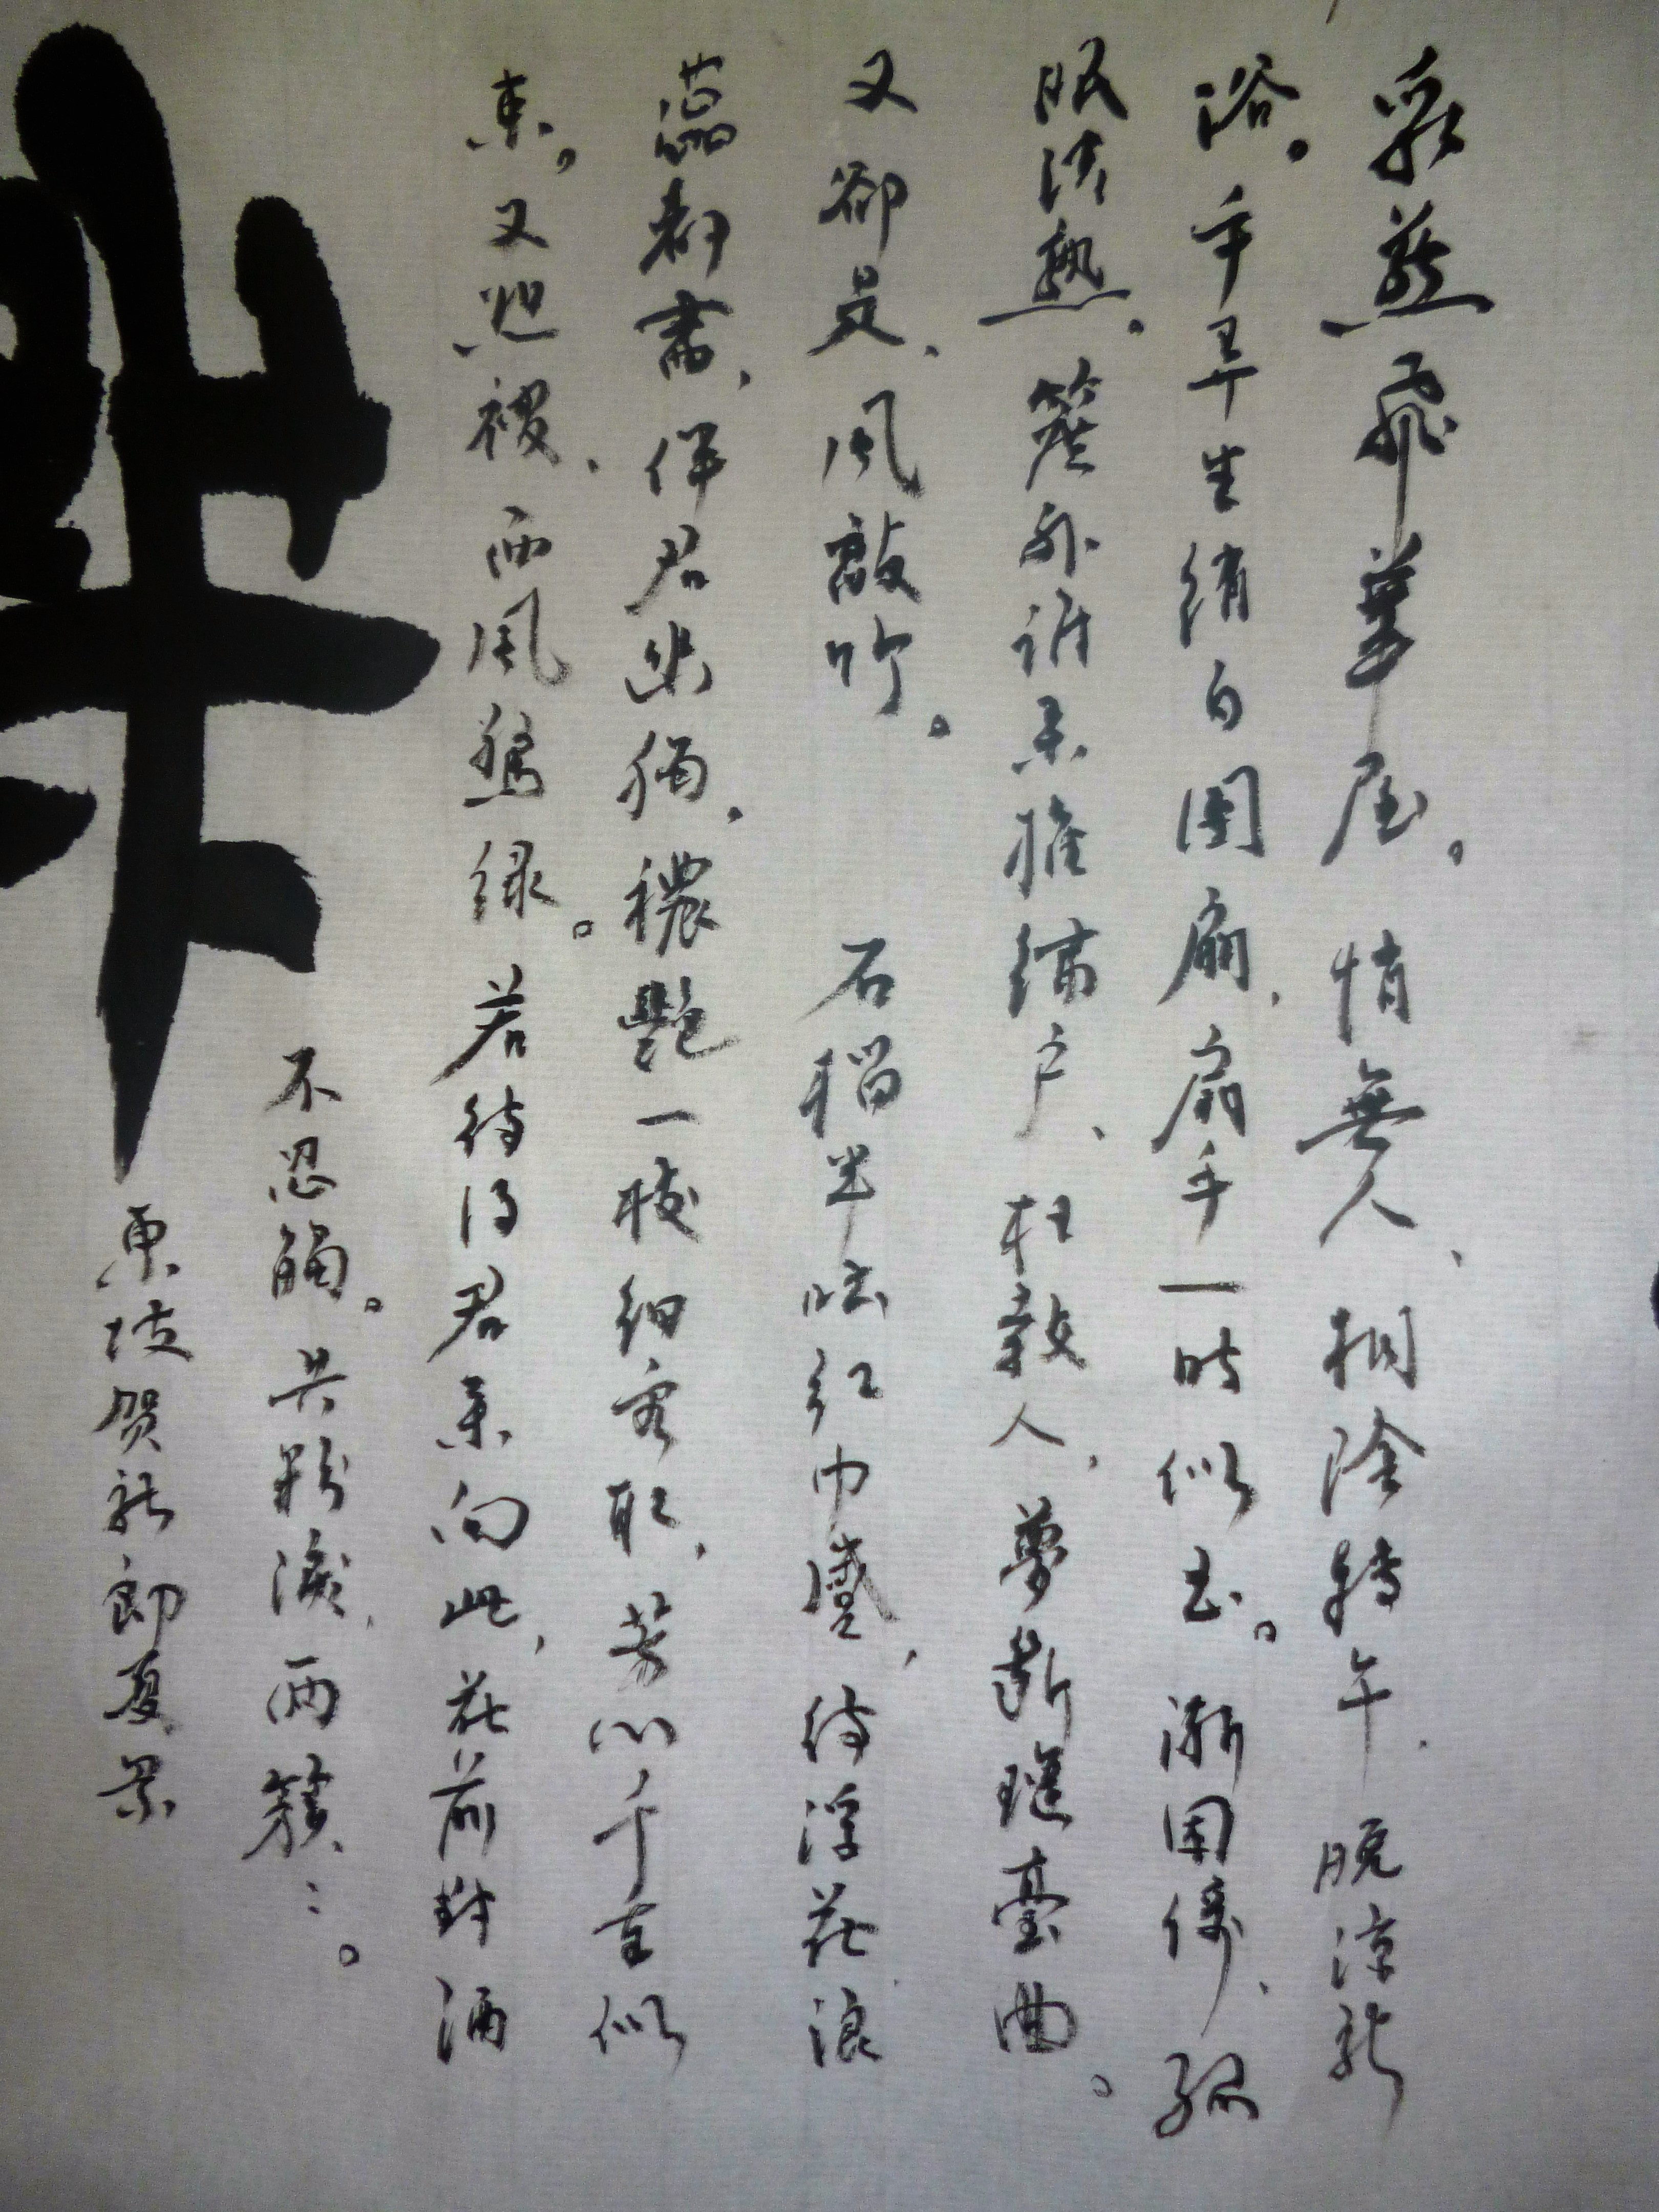 乳燕飛華屋。悄無人、桐陰轉午，晚涼新
浴。手弄生綃白團扇，扇手一時似玉。漸困倚、孤
眠清熟。簾外誰來推繡户、枉教人，夢斷瑤臺曲。
又卻是、風敲竹。 石榴半吐紅巾蹙，待浮花浪
蕊都盡，伴君幽獨。穠艷一枝細看取，芳心千重似
束。又恐被、西風驚綠。若待得君來向此，花前對酒
不忍觸。共粉淚，兩簌：。
東坡贺新郎夏景